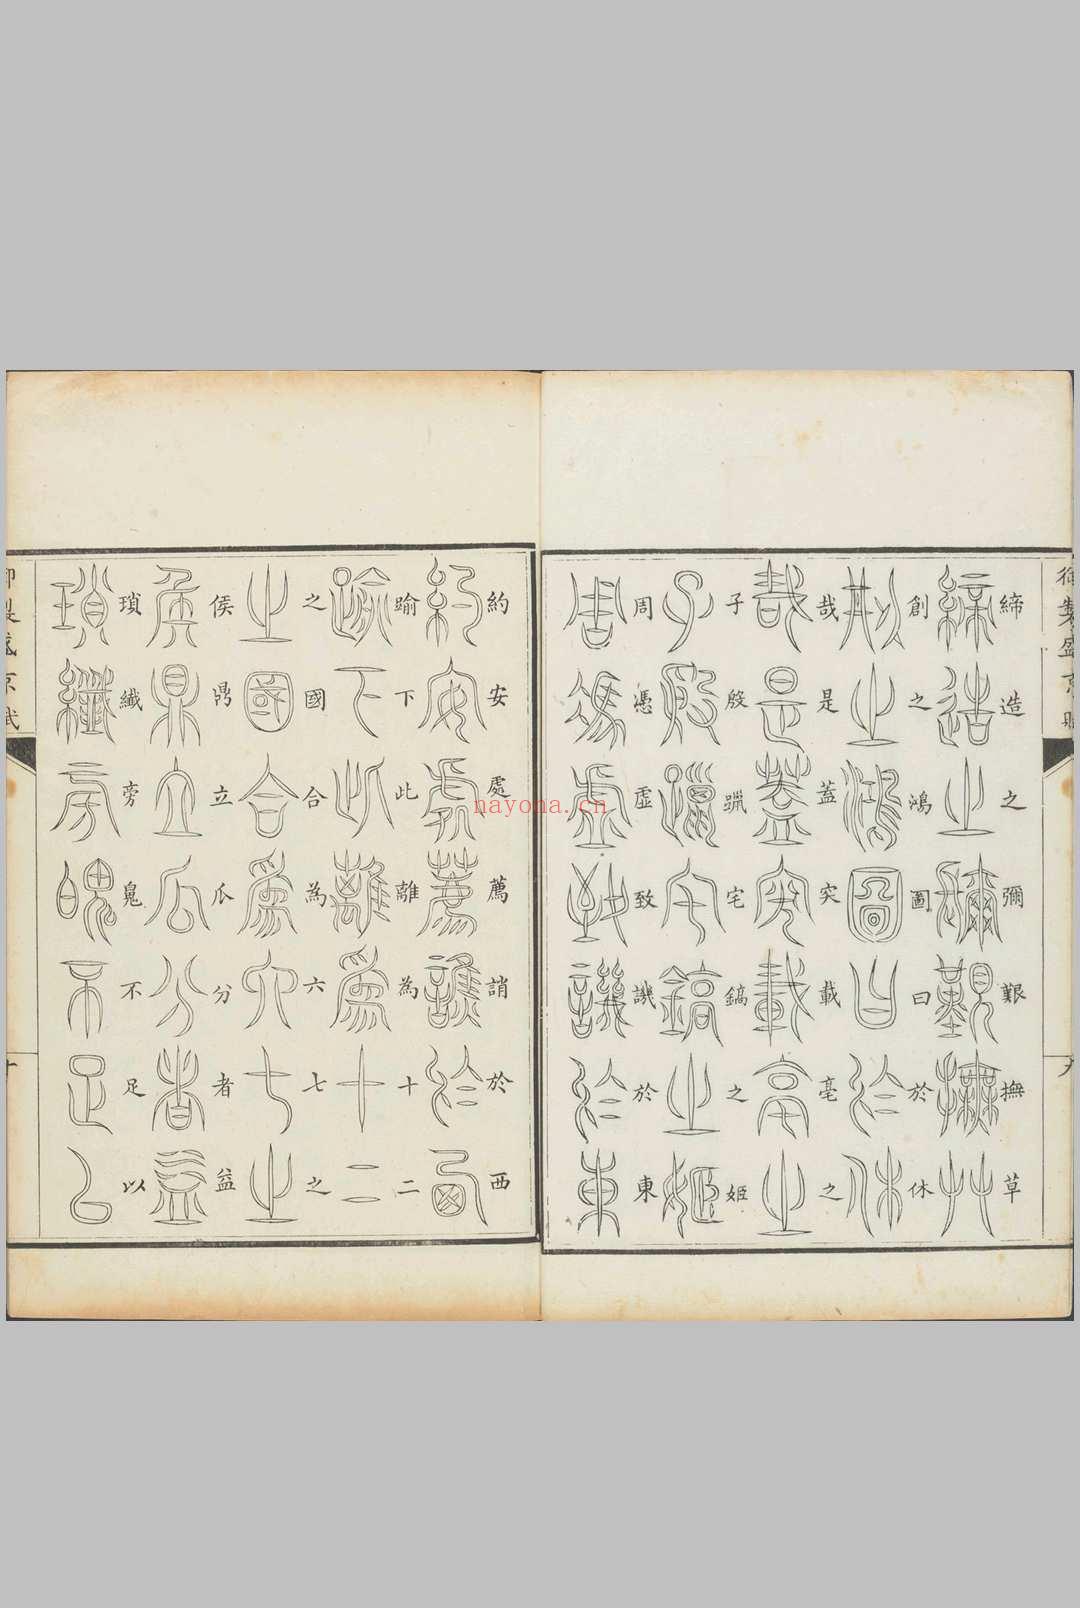 御製盛京賦
締造之彌艱撫草
創之鴻圖曰於休
哉是蓋突載亳之
子殷躐宅鎬之姬
周憑虛致譏於東
九
約安處薦誚於西
踰下此離為十二
之國合為六七之
侯鼎立瓜分者益
瑣纖旁鬼不足以
御製盛京賦
十
nayona.cn